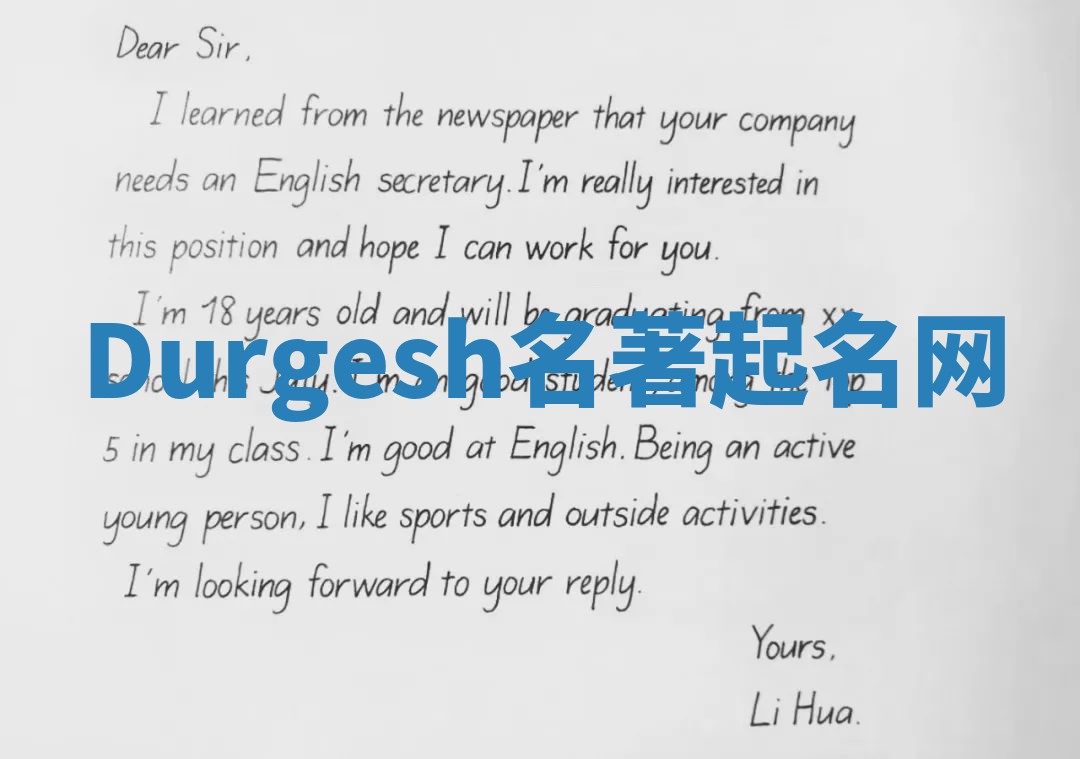 Dear Sir,
I learned from the newspaper that your company
needs an English secretary. I'm really interested in
this position and hope I can work for you.
I'm 18 years old and will be graduating from xx
Durgesh名著起名网
school this July. I'm an good student, among the top
5 in my class. I'm good at English. Being an active
young person, I like sports and outside activities.
I'm looking forward to your reply.
Yours,
Li Hua.